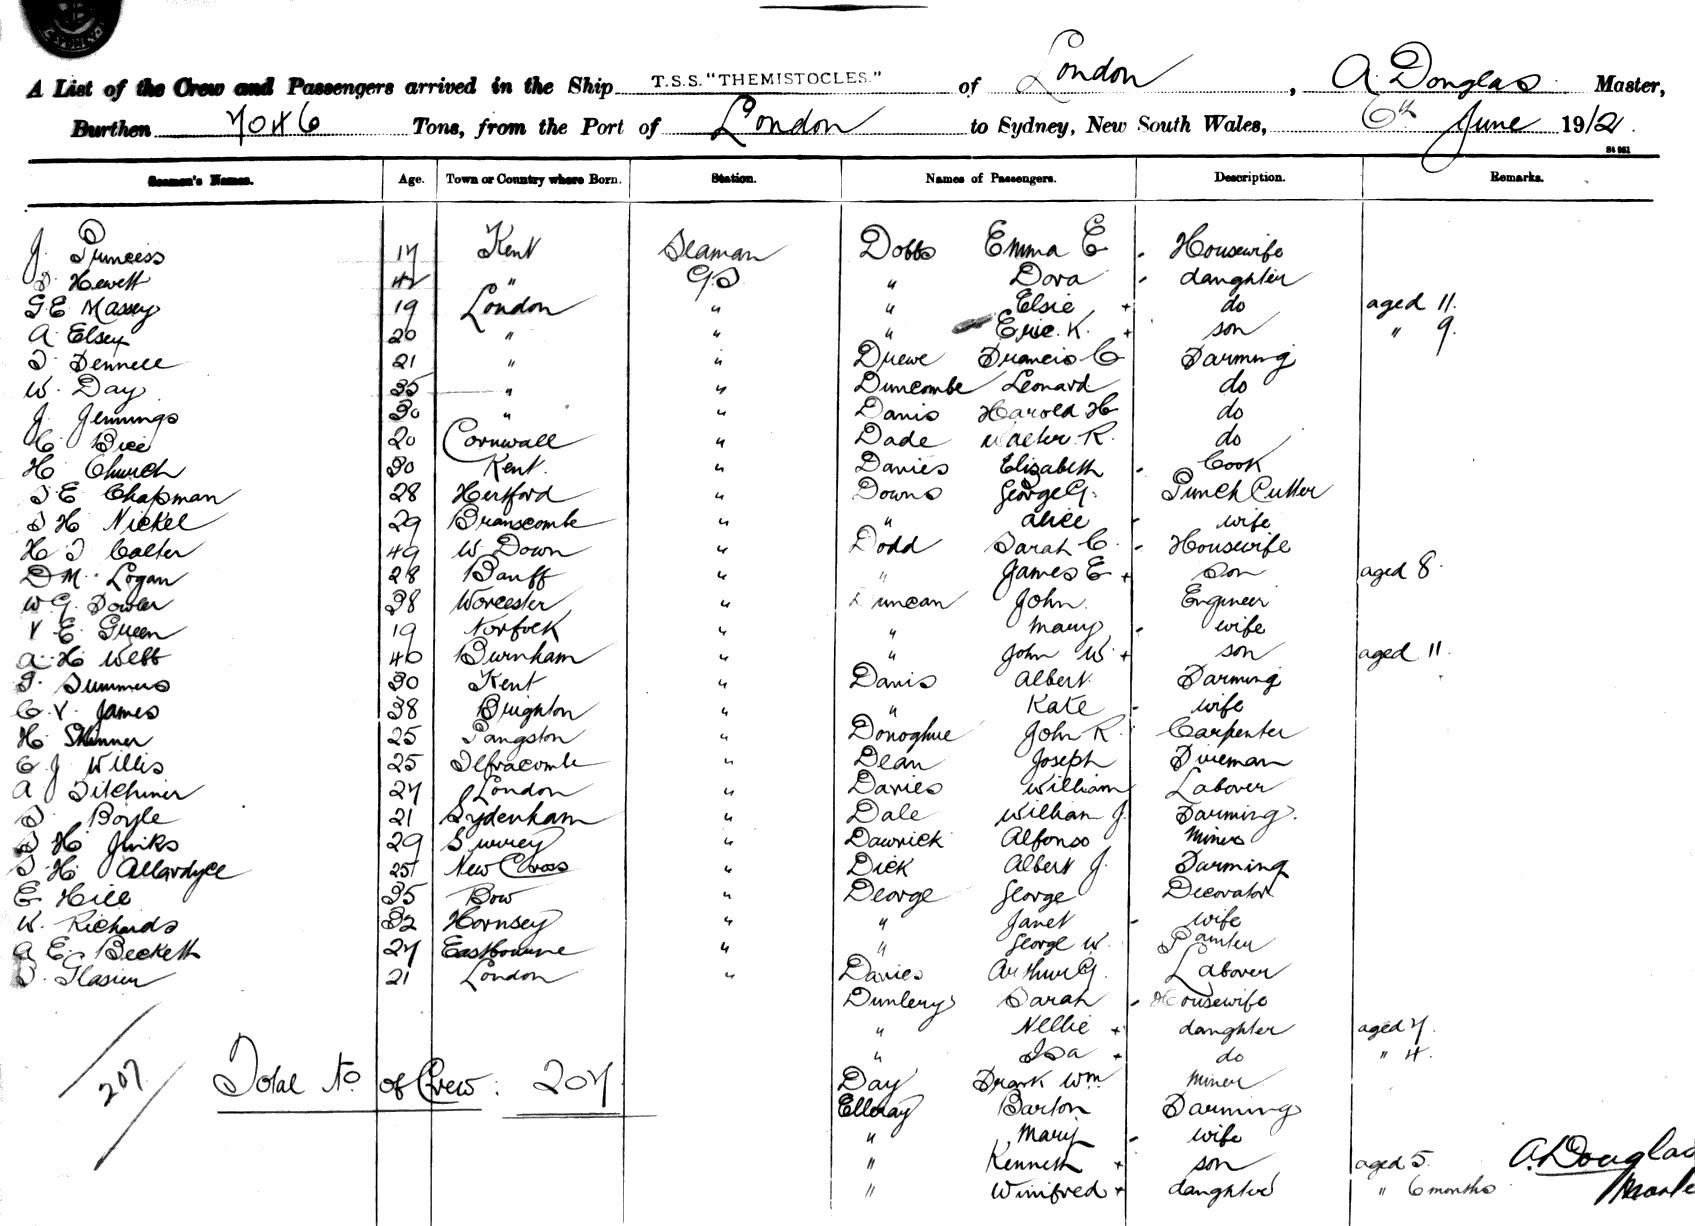 A List of the Crew and Passengers arrived in the Ship T.S.S. "THEMISTOCLES." of London, A. Douglas Master,
Burthen 7046 Tons, from the Port of London to Sydney, New South Wales, 6th June 1912.
Seamen's Names. Age. Town or Country where Born. Station. Names of Passengers. Description. Remarks.
J. Princess 17 Kent Seaman Dobbs Emma E - Housewife
Hewett 42 " GS " Dora - daughter
G E Massey 19 London " " Elsie + do aged 11.
A. Elsey 20 " " " Eric. K. + son " 9.
F Fennell 21 " " Drewe Francis C Farming
W. Day 35 " " Duncombe Leonard do
J. Jennings 30 " " Davis Harold H do
C Bice 20 Cornwall " Dade Walter R. do
H Church 30 Kent. " Davies Elizabeth - Cook
F E Chapman 28 Hertford " Downs George G. Punch Cutter
F H Nickel 29 Branscombe " " Alice - wife
H F Calter 49 W Down " Dodd Sarah C. - Housewife
D M. Logan 28 Banff " " James E + son aged 8.
W G. Fowler 38 Worcester " Duncan John. Engineer
V E. Green 19 Norfolk " " Mary - wife
A H Webb 40 Burnham " " John W. + son aged 11.
Summers 30 Kent " Davis Albert. Farming
C. V. James 38 Brighton " " Kate - wife
H. Skinner 25 Pangston " Donoghue John R. Carpenter
C J Willis 25 Ilfracombe " Dean Joseph Fireman
A Titchiner 27 London " Davies William Laborer
Boyle 21 Sydenham " Dale William J. Farming.
F H Jinks 29 Surrey " Dawrick Alfonso Miner
F H. Allardyce 25 New Cross " Dick Albert J. Farming
E Hill 35 Bow " George George Decorator
W. Richards 32 Hornsey " " Janet - wife
A E. Beckett 27 Eastbourne " " George W. Painter
F. Glasier 21 London " Davies Arthur G. Laborer
Dunlery Sarah - Housewife
" Nellie + daughter aged 7.
" Isa + do " 4.
207 Total No of Crew: 207 Day Frank Wm Miner
Elleray Barton Farming
" Mary - wife
" Kenneth + son aged 5. A. Douglas
" Winifred + daughter " 6 months Master